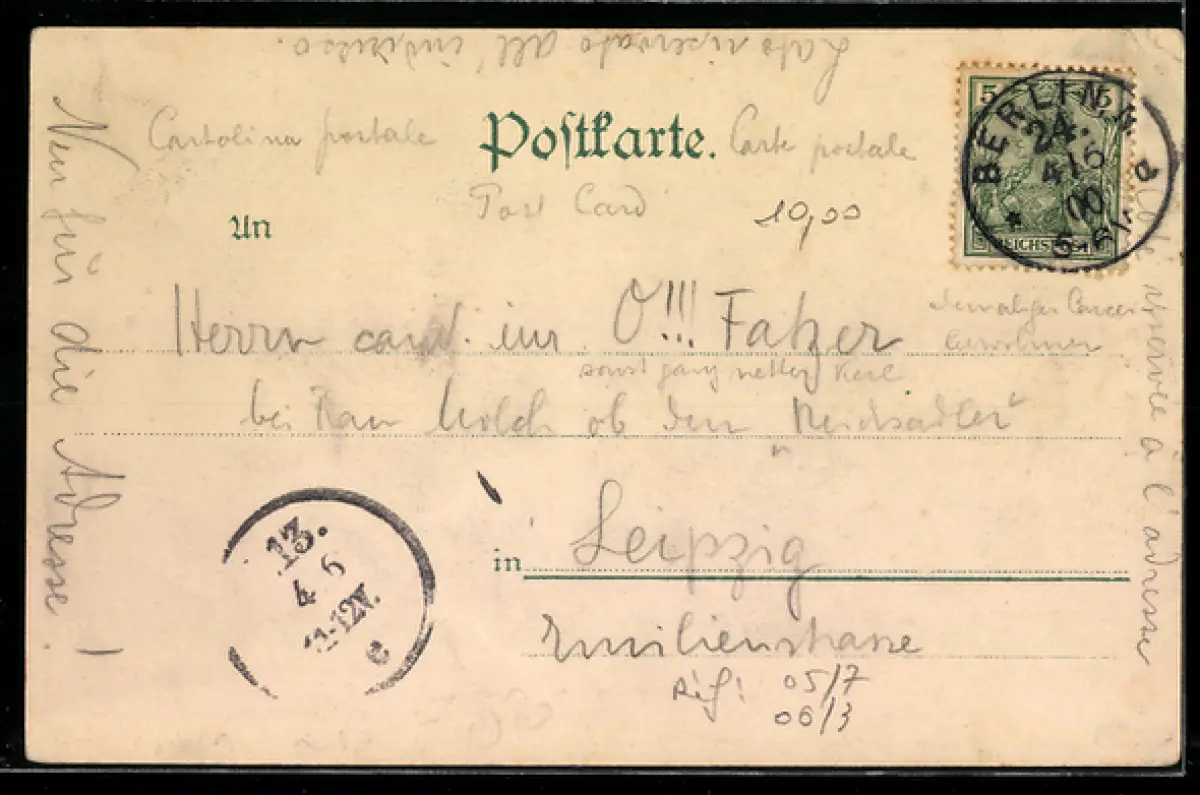 Lato riservato all' indirizzo.
Cartolina postale
Postkarte.
Carte postale
Post Card
An
10,00
5 5
BERLIN N.
24.
4/6
00
5-6N.
d
REICHSPOST
Herrn cand. iur. O!!! Fatzer
sonst ganz netter Kerl
bei Frau ob dem Reichsadler"
in Leipzig
Emilienstrasse
13.
4 6
11-12N.
e
05/7
06/3
Nur für die Adresse!
réservé à l'adresse